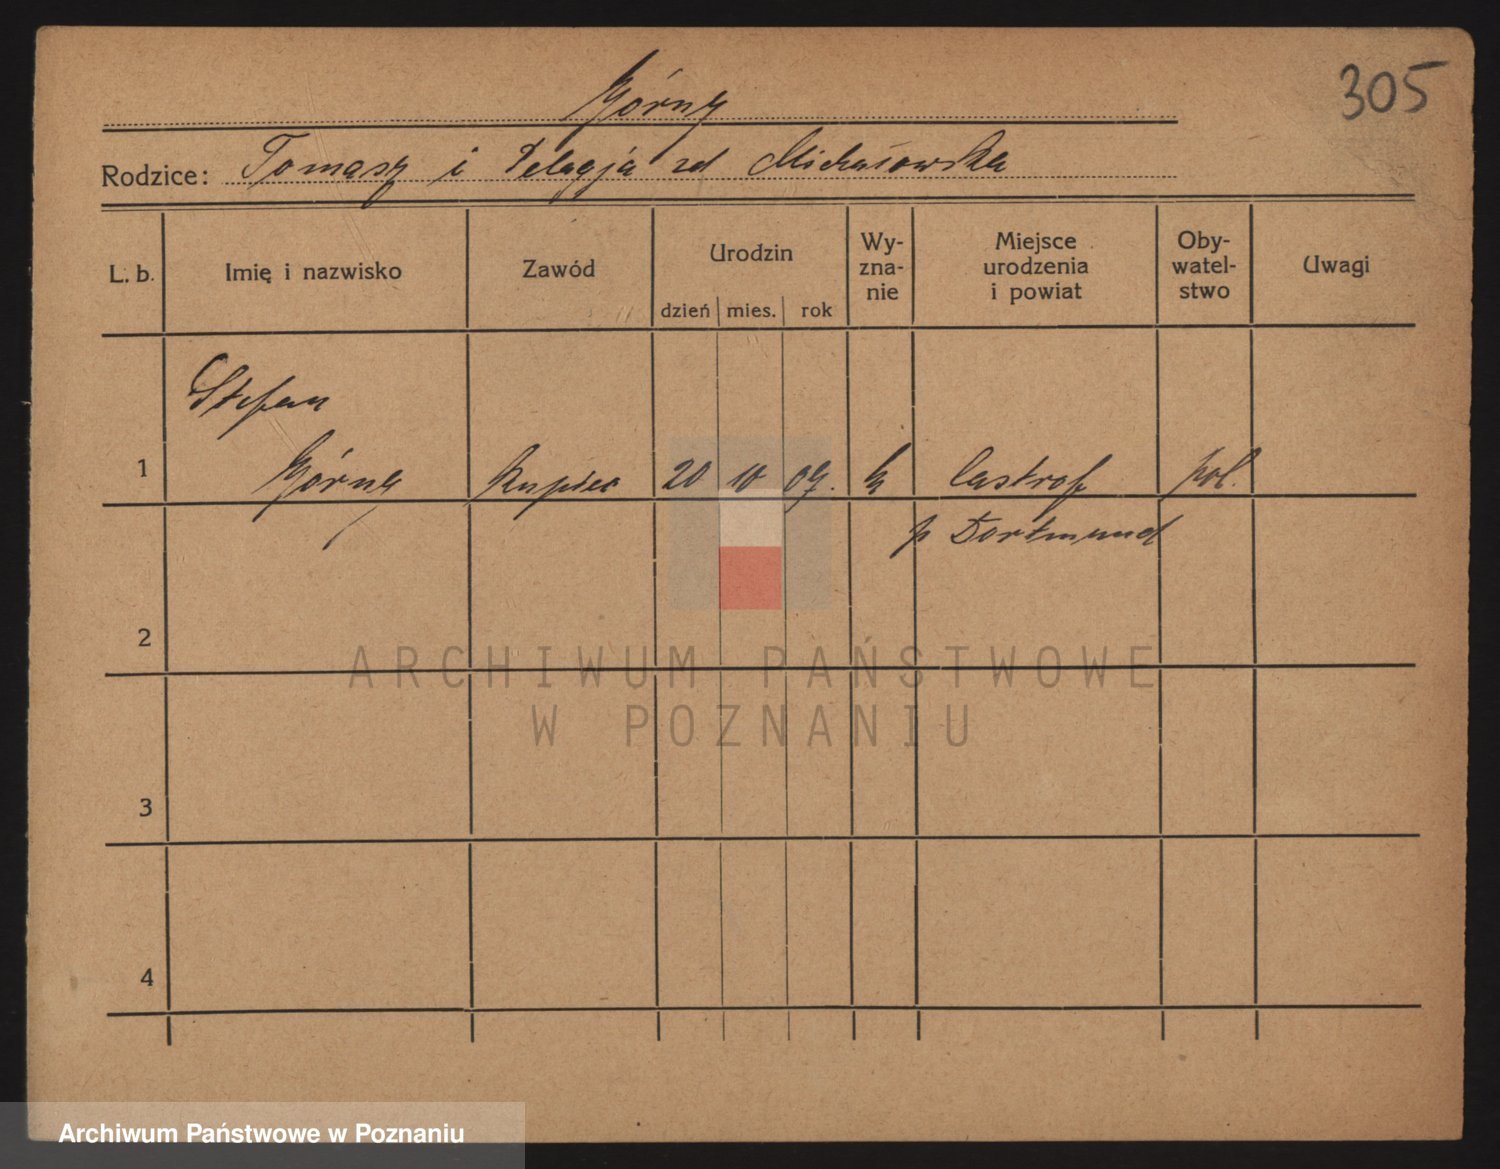 305
Górny
Rodzice: Tomasz i Pelagja zd Michałowska
L. b. Imię i nazwisko Zawód Urodzin dzień mies. rok Wy-zna-nie Miejsce urodzenia i powiat Oby-watel-stwo Uwagi
Stefan
1 Górny Kupiec 20 10 07. k Castrop pol.
p Dortmund
2
3
4
ARCHIWUM PAŃSTWOWE
W POZNANIU
Archiwum Państwowe w Poznaniu